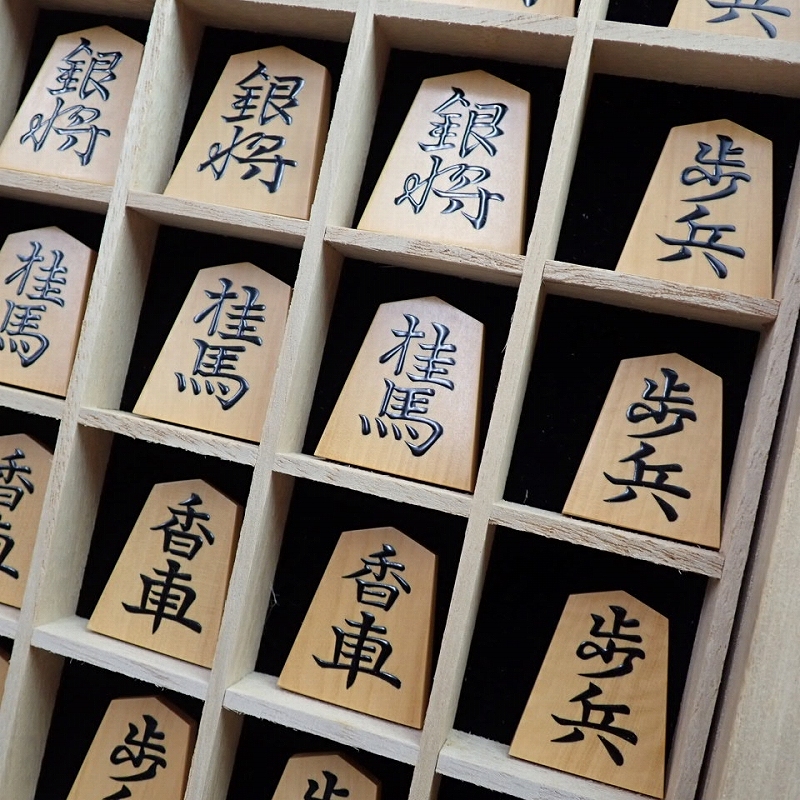 兵
銀将
銀将
銀将
歩兵
桂馬
桂馬
桂馬
歩兵
香車
香車
香車
歩兵
歩
歩